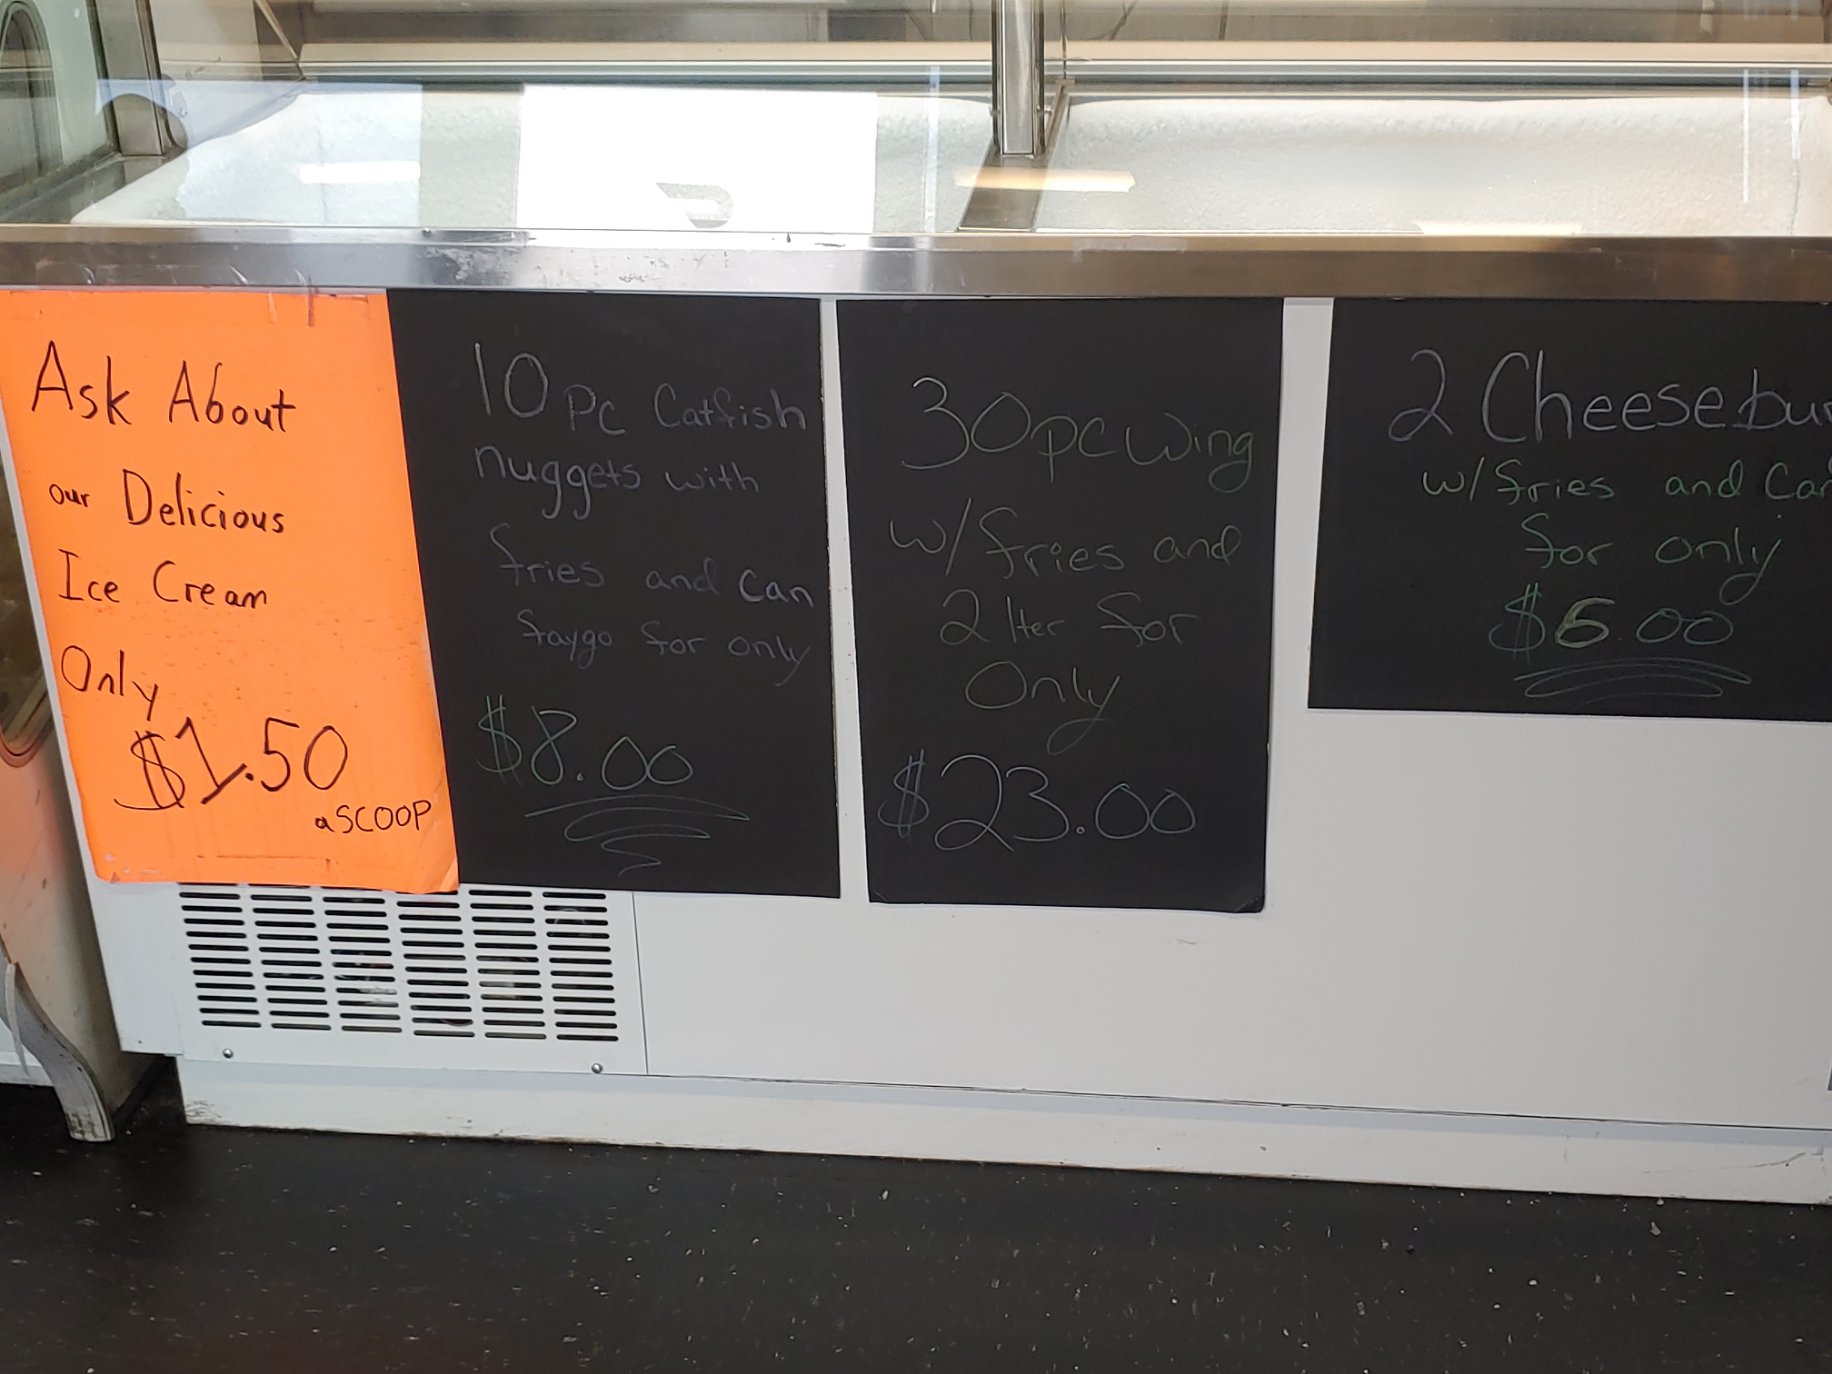 Ask About
our Delicious
Ice Cream
Only
$1.50
a SCOOP
10 pc Catfish
nuggets with
fries and can
faygo for only
$8.00
30 pc wing
w/fries and
2 lter for
Only
$23.00
2 Cheesebur
w/fries and Can
for only
$6.00